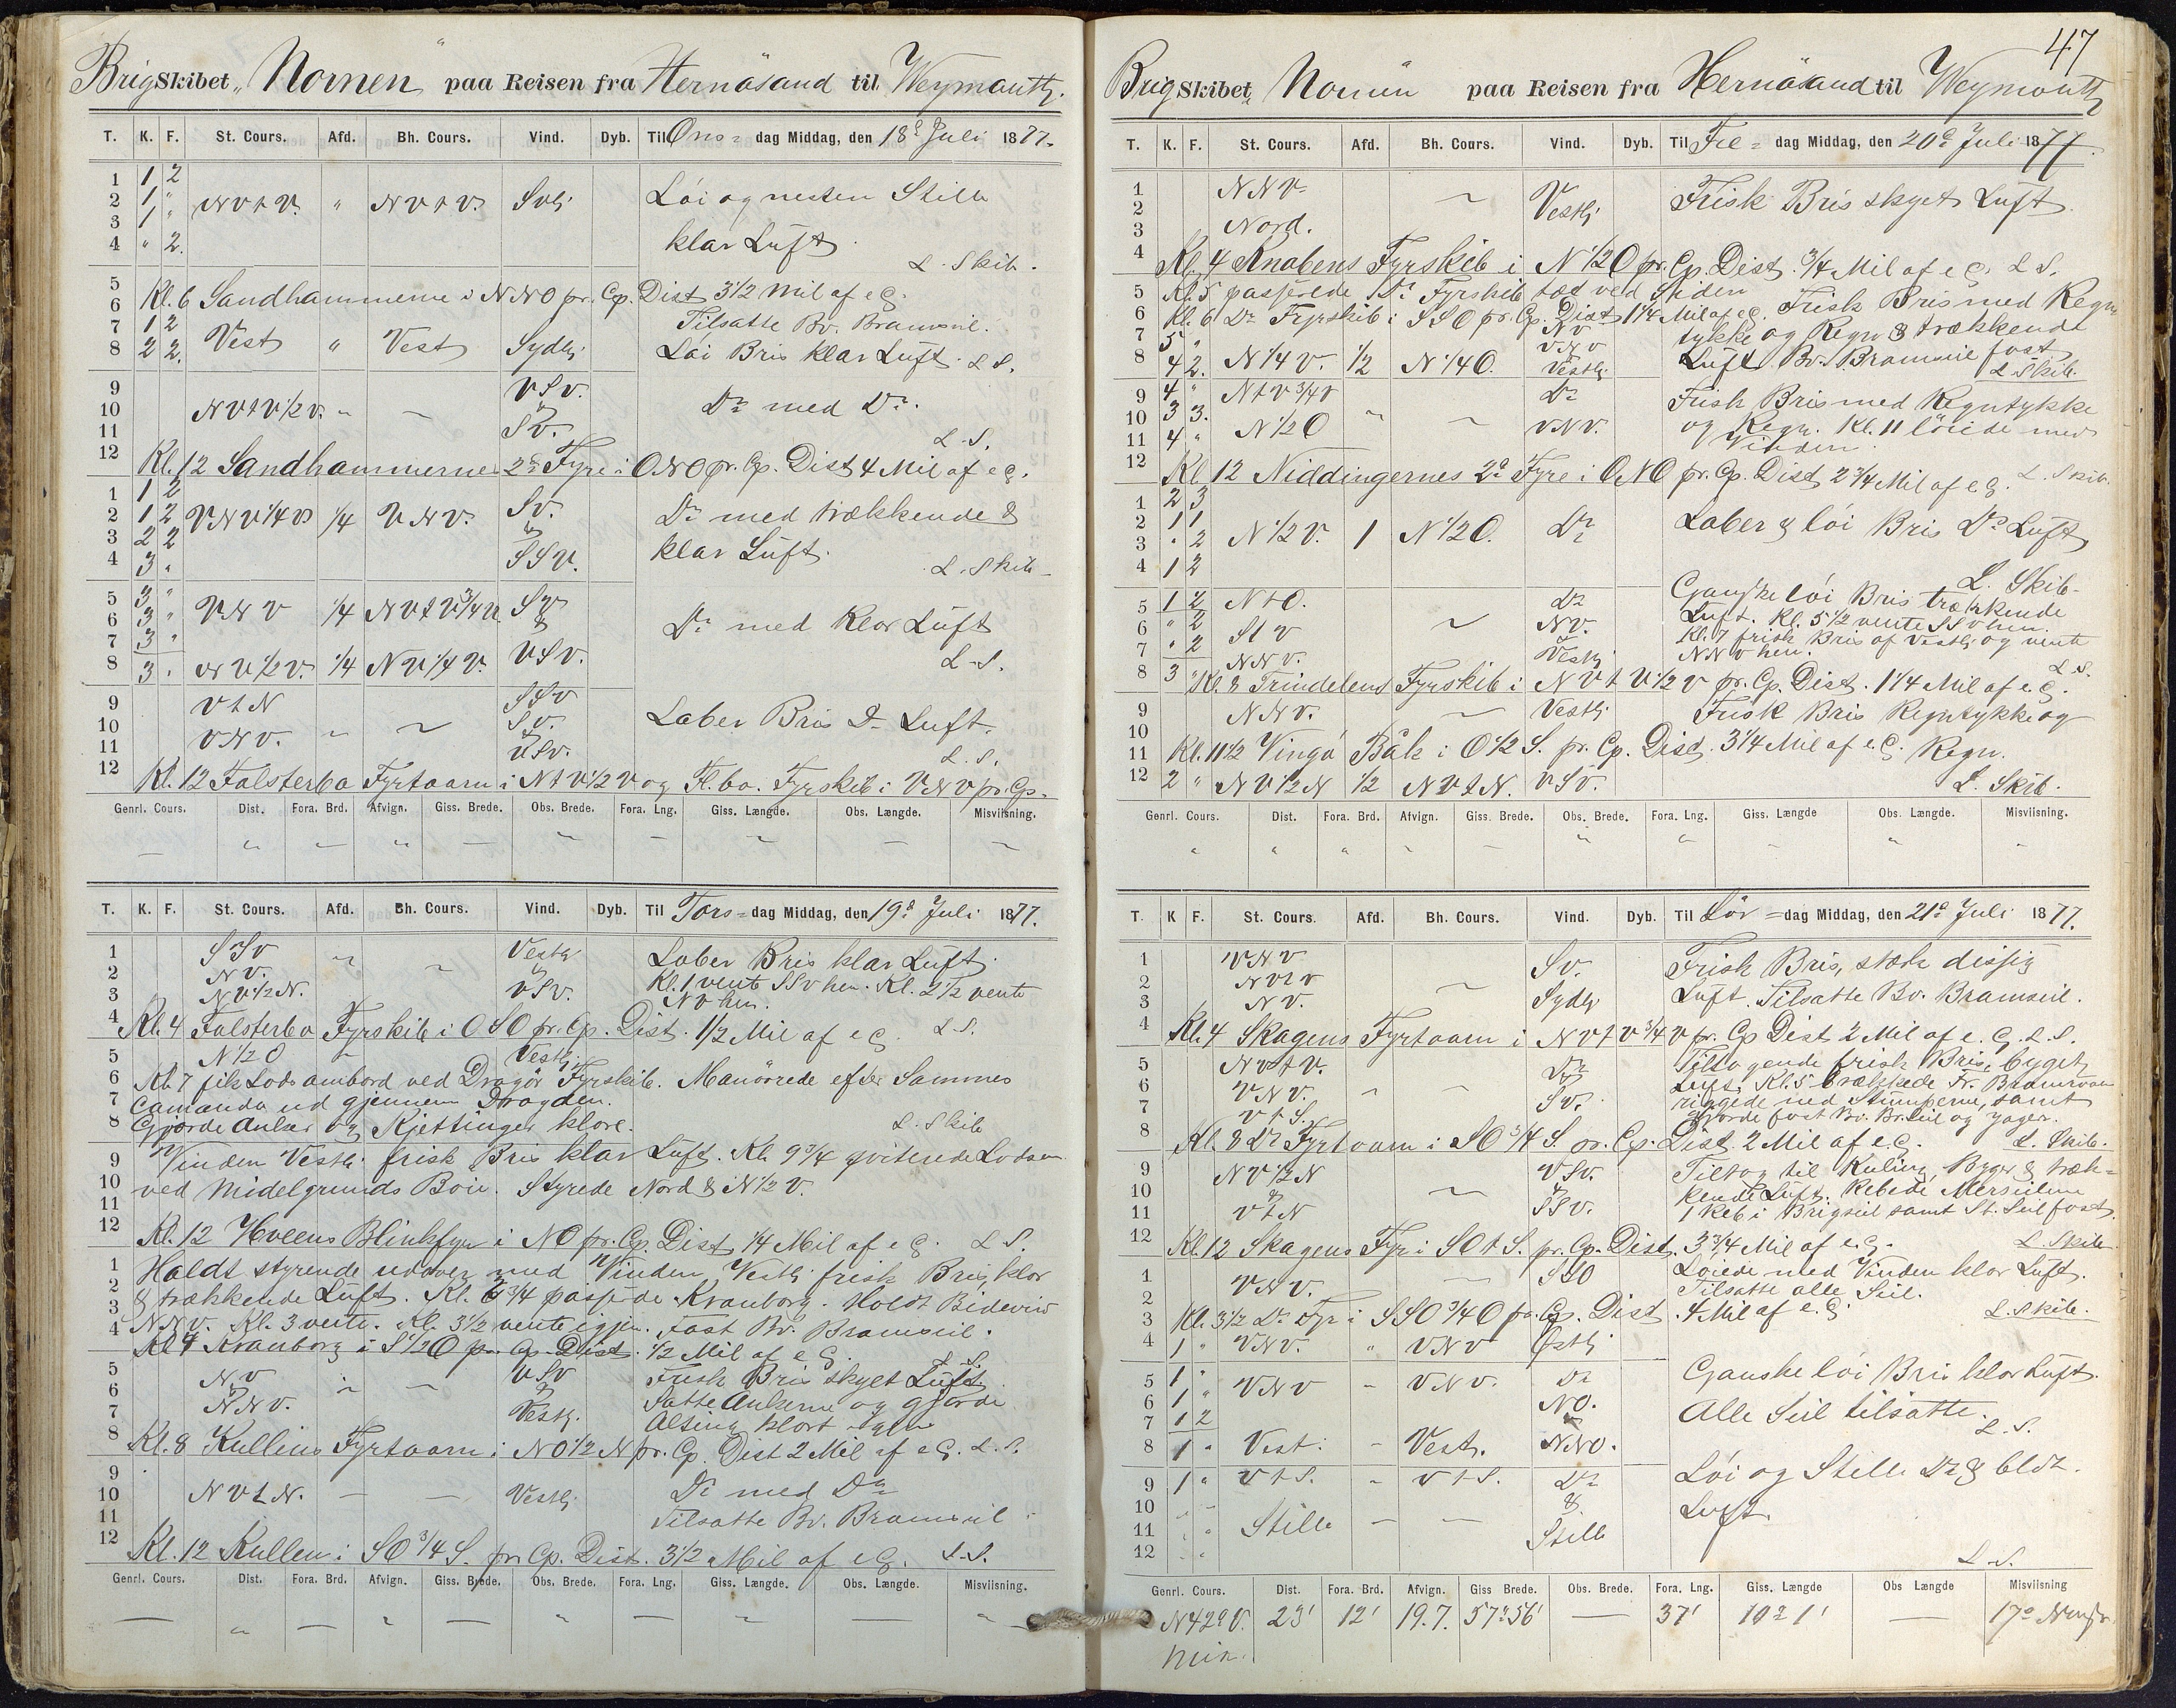 Brig Skibet „Nornen" paa Reisen fra Hernösand til Weymouth.
T. K. F. St. Cours. Afd. Bh. Cours. Vind. Dyb. Til Ons= dag Middag, den 18de Juli 1877.
1 1 2
2 1 " NVtV. " NVtV. Svli Löi og nesten Stille
3 1 "
4 " 2. klar Luft.
L. Skib.
5
6 Kl. 6 Sandhammerne i NNO pr. Cp. Dist 3 1/2 Mil af e G.
7 1 2 Tilsatte Bv. Bramseil.
8 2 2. Vest " Vest Sydli Löi Bris klar Luft. L S.
9 VSV.
10 NVtV 1/2 V. " ~ & Do med Do.
11 SV.
L. S.
12 Kl. 12 Sandhammerne 2de Fyre i ONO pr. Cp. Dist 4 Mil af e G.
1 1 2
2 1 2 VNV 1/4 V 1/4 VNV. SV. Do med trækkende &
3 2 2 &
4 3 " SSV. klar Luft.
L. Skib
5 3 "
6 3 " VNV 1/4 NVtV 3/4 V. SV
7 3 " & Do med Klar Luft
8 3 " NV 1/2 V. 1/4 NV 1/4 V. VSV. L. S.
9 VtN SSV
10 SV. Laber Bris Do Luft.
11 VNV. " ~ & VSV.
L. S.
12 Kl. 12 Falsterbo Fyrtaarn i NtV 1/2 V og Fl.bo. Fyrskib i VNV pr. Cp.
Genrl. Cours. Dist. Fora. Brd. Afvign. Giss. Brede. Obs. Brede. Fora. Lng. Giss. Længde. Obs. Længde. Misviisning.
T. K. F. St. Cours. Afd. Bh. Cours. Vind. Dyb. Til Tors= dag Middag, den 19de Juli 1877.
1 SSV Vestli Laber Bris klar Luft.
2 NV. " ~ & Kl. 1 vente SSV hen. Kl. 2 1/2 vente
3 NV 1/2 N. VSV. NV hen.
4 Kl. 4 Falsterbo Fyrskib i OSO pr. Cp. Dist. 1/2 Mil af e G. L S.
5 N 1/2 O Vestli
6 Kl. 7 fik Lods ambord ved Dragör Fyrskib. Manövrede efter Sammes
7 Camando ud gjennem Drogden.
8 Gjorde Anker og Kjettinger klare. L. Skib
9 Vinden Vestli frisk Bris klar Luft. Kl. 9 3/4 qviterede Lodsen
10 ved Midelgrunds Böie. Styrede Nord & N 1/2 V.
11
12 Kl. 12 Hveens Blinkfyr i NO pr. Cp. Dist 1/4 Mil af e G. L S.
1 Holdt styrende udover med Vinden Vestli frisk Bris klar
2 & trækkende Luft. Kl. 3/4 passerede Kronborg. Holdt Bidevind
3 NNV. Kl. 3 vente. Kl. 3 1/2 vente igjen. Fast Bv. Bramseil.
4 Kl 4 Kronborg i S 1/2 O pr. Cp. Dist. 1/2 Mil af e G. L. S.
5 NV VSV Frisk Bris skyet Luft.
6 & " ~ &
7 NNV. Vestli. Satte Ankerne og gjorde
Alting klart igjen
8 Kl. 8 Kullens Fyrtaarn i NO 1/2 N pr. Cp. Dist 2 Mil af e G. L. S.
9
10 NVtN. — — Vestli Do med Do
11 Tilsatte Bv. Bramseil
12 Kl. 12 Kullen i SO 3/4 S. pr. Cp. Dist. 3 1/2 Mil af e G. L. S.
Genrl. Cours. Dist. Fora. Brd. Afvign. Giss. Brede. Obs. Brede. Fora. Lng. Giss. Længde. Obs. Længde. Misviisning.
47
Brig Skibet „Nornen paa Reisen fra Hernösand til Weymouth
T. K. F. St. Cours. Afd. Bh. Cours. Vind. Dyb. Til Fre= dag Middag, den 20de Juli 1877.
1 NNV
2 ~ Vestli Frisk Bris skyet Luft.
3 Nord.
4 Kl. 4 Knobens Fyrskib i N 1/2 O pr. Cp. Dist. 3/4 Mil af e G. L S.
5 Kl. 5 passerede Do Fyrskib tæt ved Siden
6 Kl. 6 Do Fyrskib i SSO pr. Cp. Dist 1 1/4 Mil af e G. Frisk Bris med Regn
7 5 " NV tykke og Regn & trækkende
8 4 2. N 1/4 V. 1/2 N 1/4 O. VNV Vestli Luft. Bv. Bramseil fast
L Skib.
9 4 " NtV 3/4 V Do Frisk Bris med Regntykke
10 3 3.
11 4 " N 1/2 O " ~ VNV. og Regn. Kl. 11 löiede med
Vinden.
12 Kl 12 Niddingernes 2de Fyre i ONO pr. Cp. Dist 2 3/4 Mil af e G. L. Skib.
1 2 3
2 1 1 N 1/2 V. 1 N 1/2 O. Do Laber & löi Bris Do Luft
3 " 2
4 1 2
L. Skib
5 1 2 NtO. Do Ganske löi Bris trækkende
6 " 2 ~ NV. Luft. Kl. 5 1/2 vente SSV hen.
7 " 2 StV Kl. 7 frisk Bris af Vestli og vente
NNV. Vestli NNV hen.
L S.
8 3 " Kl. 8 Trindelens Fyrskib i NVtV 1/2 V pr. Cp. Dist. 1 1/4 Mil af e. G.
9 NNV. ~ Vestli Frisk Bris Regntykke og
10
11 Kl. 11 1/2 Vingö Båk i O 1/2 S. pr. Cp. Dist. 3 1/4 Mil af e. G. Regn.
12 2 " NV 1/2 N 1/2 NVtN. VSV. L. Skib.
Genrl. Cours. Dist. Fora. Brd. Afvign. Giss. Brede. Obs. Brede. Fora. Lng. Giss. Længde Obs. Længde. Misviisning.
T. K F. St. Cours. Afd. Bh. Cours. Vind. Dyb. Til Lör =dag Middag, den 21de Juli 1877.
1 VNV SV. Frisk Bris, stærk dissig
2 NVtV ~
3 NV. Sydli Luft. Tilsatte Bv. Bramseil.
4 Kl. 4 Skagens Fyrtaarn i NVtV 3/4 V pr. Cp Dist 2 Mil af e. G. L. S.
5 NVtV. Do Tiltagende frisk Bris, byget
6 VNV. " ~ & Luft. Kl. 5
7 VtS. SV. ned Stumperne, samt
gjorde fast Bv. Br.seil og Jager.
8 Kl. 8 Do Fyrtaarn i SO 3/4 S. pr. Cp. Dist. 2 Mil af e G. L. Skib.
9 NV 1/2 N VSV. Tiltog til Kuling, Byger & træk=
10 & ~ & kende Luft. Rebede Merseilene
11 VtN SSV. 1 Reb i Brigseil samt St. Seil fast.
12 Kl. 12 Skagens Fyr i SOtS. pr. Cp. Dist. 3 3/4 Mil af e. G. L. Skib
1 VNV. ~ SSO Löiede med Vinden klar Luft.
2 Tilsatte alle Seil.
3 Kl. 3 1/2 Do Fyr i SSO 3/4 O pr. Cp. Dist. 4 Mil af e. G. L. Skib.
4 1 " VNV. " VNV Östli
5 1 " VNV – VNV. Do Ganske löi Bris klar Luft.
6 1 " NO.
7 1 2 & Alle Seil tilsatte.
8 1 " Vest. – Vest. NNO. L. S.
9 1 " VtS. – VtS. Do Löi og Stille Do &
10 " – &
11 " " Stille – — Stille Luft.
12 " "
L. S.
Genrl. Cours. Dist. Fora. Brd. Afvign. Giss Brede. Obs. Brede. Fora. Lng. Giss. Længde Obs Længde Misviisning
N 42° V. 23' 12' 19.7. 57° 56' — 37' 10° 1' — 17°